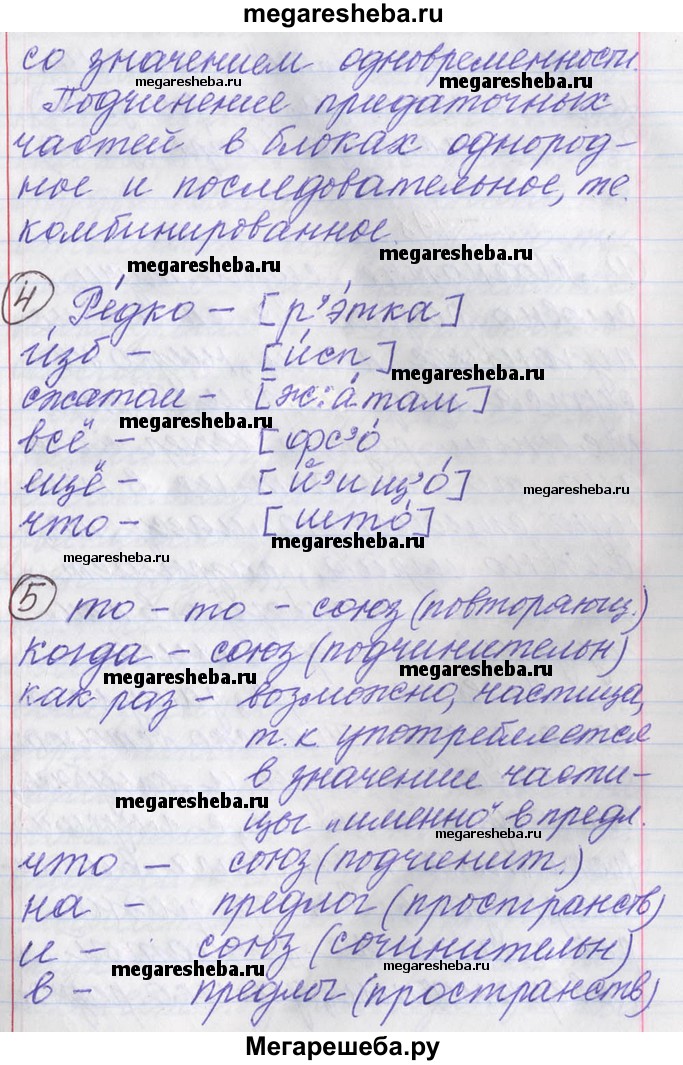 megaresheba.ru
со значением одновременности.
megaresheba.ru megaresheba.ru
Подчинение придаточных
частей в блоках однород-
ное и последовательное, т.е.
комбинированное.
megaresheba.ru megaresheba.ru
4 Ре́дко – [р’э́тка]
и́зб – [и́сп]
megaresheba.ru
сжатом – [ж:а́там]
megaresheba.ru
всё – [фс’о́
ещё – [й’ищ’о́]
megaresheba.ru
что – [што́]
megaresheba.ru
megaresheba.ru
5 то – то – союз (повторяющ.)
когда – союз (подчинительн)
megaresheba.ru megaresheba.ru
как раз – возможно, частица,
т.к. употребляется
в значении части-
megaresheba.ru
цы „именно“ в предл.
megaresheba.ru
что – союз (подчинит.)
на – предлог (пространств)
и – союз (сочинительн)
megaresheba.ru megaresheba.ru
в – предлог (пространств)
Мегарешеба.ру